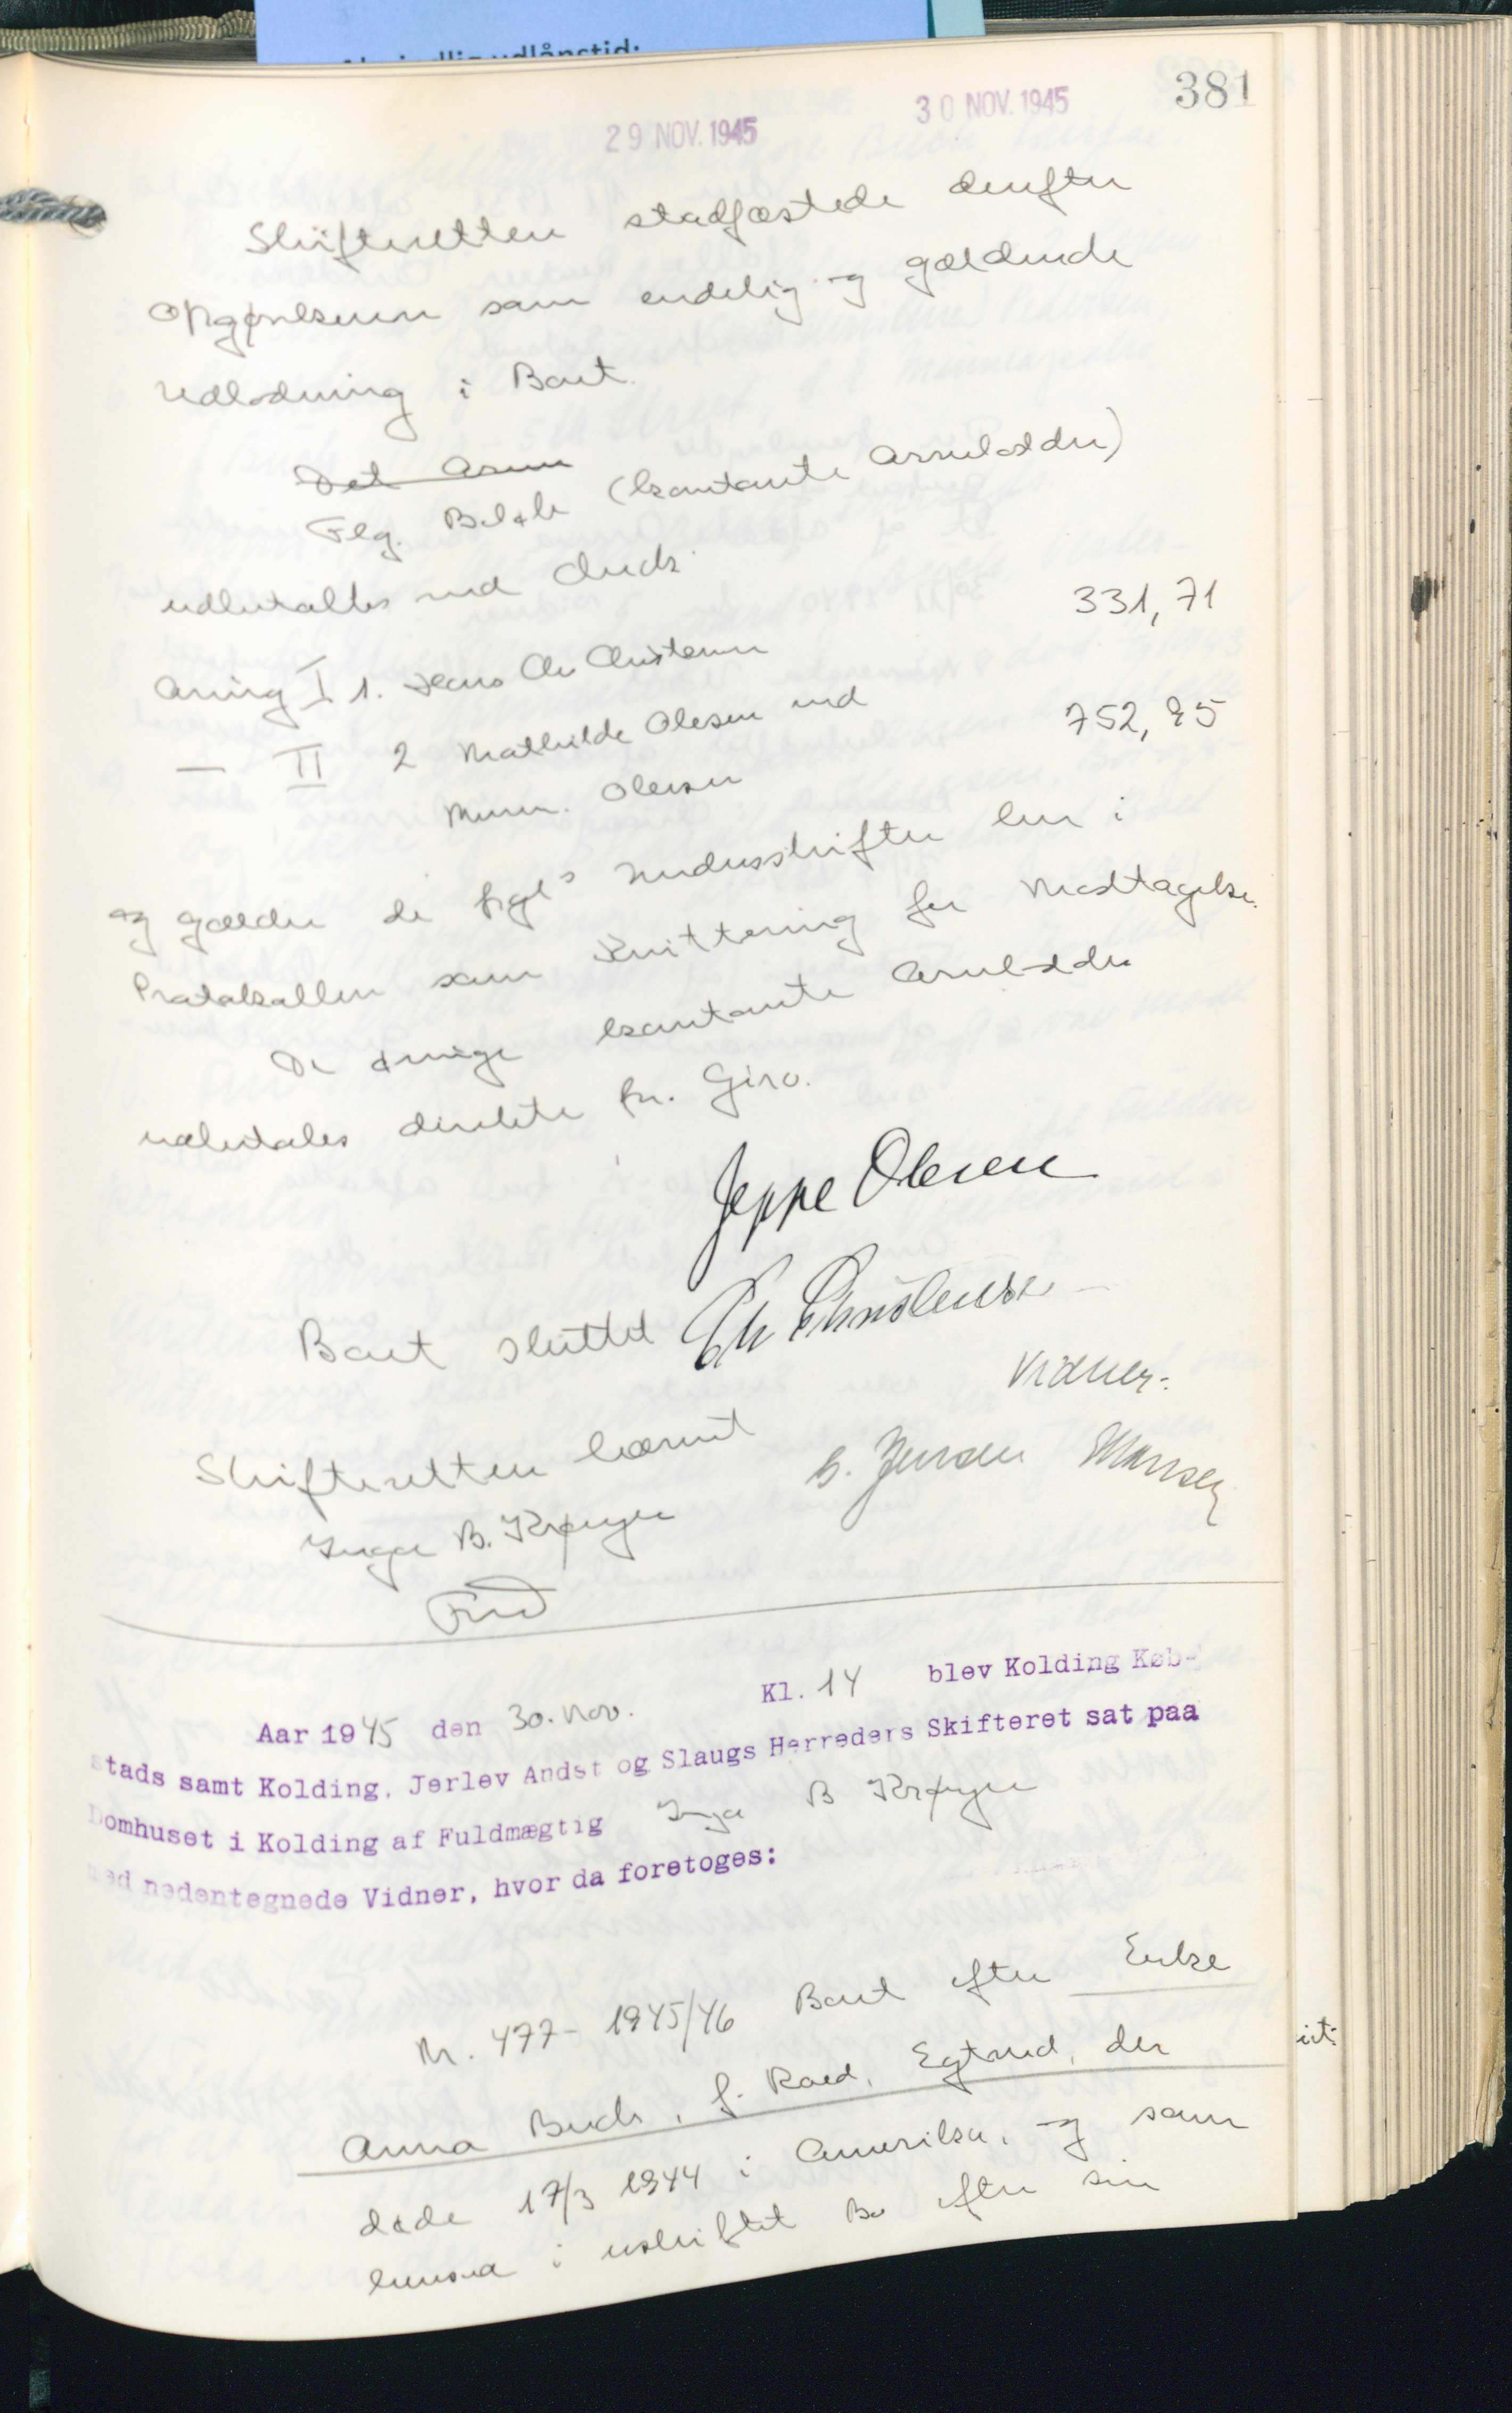 381
29 NOV. 1945
30 NOV. 1945
Skifteretten stadfæstede derefter
Opgørelsen som endelig og gældende
Udlodning i Boet.
Det Arven
Flg. Beløb (kontante Arvelodder)
udbetaltes ved Check
Arving I 1. Hans Chr Christensen 331,71
— II 2 Mathilde Olesen ved 752,95
Olesen
og gælder de Underskrifter her i
Protokollen som Kvittering for Modtagelse.
De øvrige kontante Arvelodder
udbetales direkte pr. Giro.
Jeppe Olesen
Boet sluttet Ch Christensen
Vidner:
Skifteretten hævet
Jensen Hansen
Inga B. Krøyer
Fmd
Aar 1945 den 30. Nov. Kl. 14 blev Kolding Køb-
stads samt Kolding, Jerlev Andst og Slaugs Herreders Skifteret sat paa
Domhuset i Kolding af Fuldmægtig Inga B Krøyer
med nedentegnede Vidner, hvor da foretoges:
Nr. 477 - 1945/46 Boet efter Enke
Anna Buch, f. Roed, Egtved, der
døde 17/3 1944 i Amerika, og som
hensad i uskiftet Bo efter sin